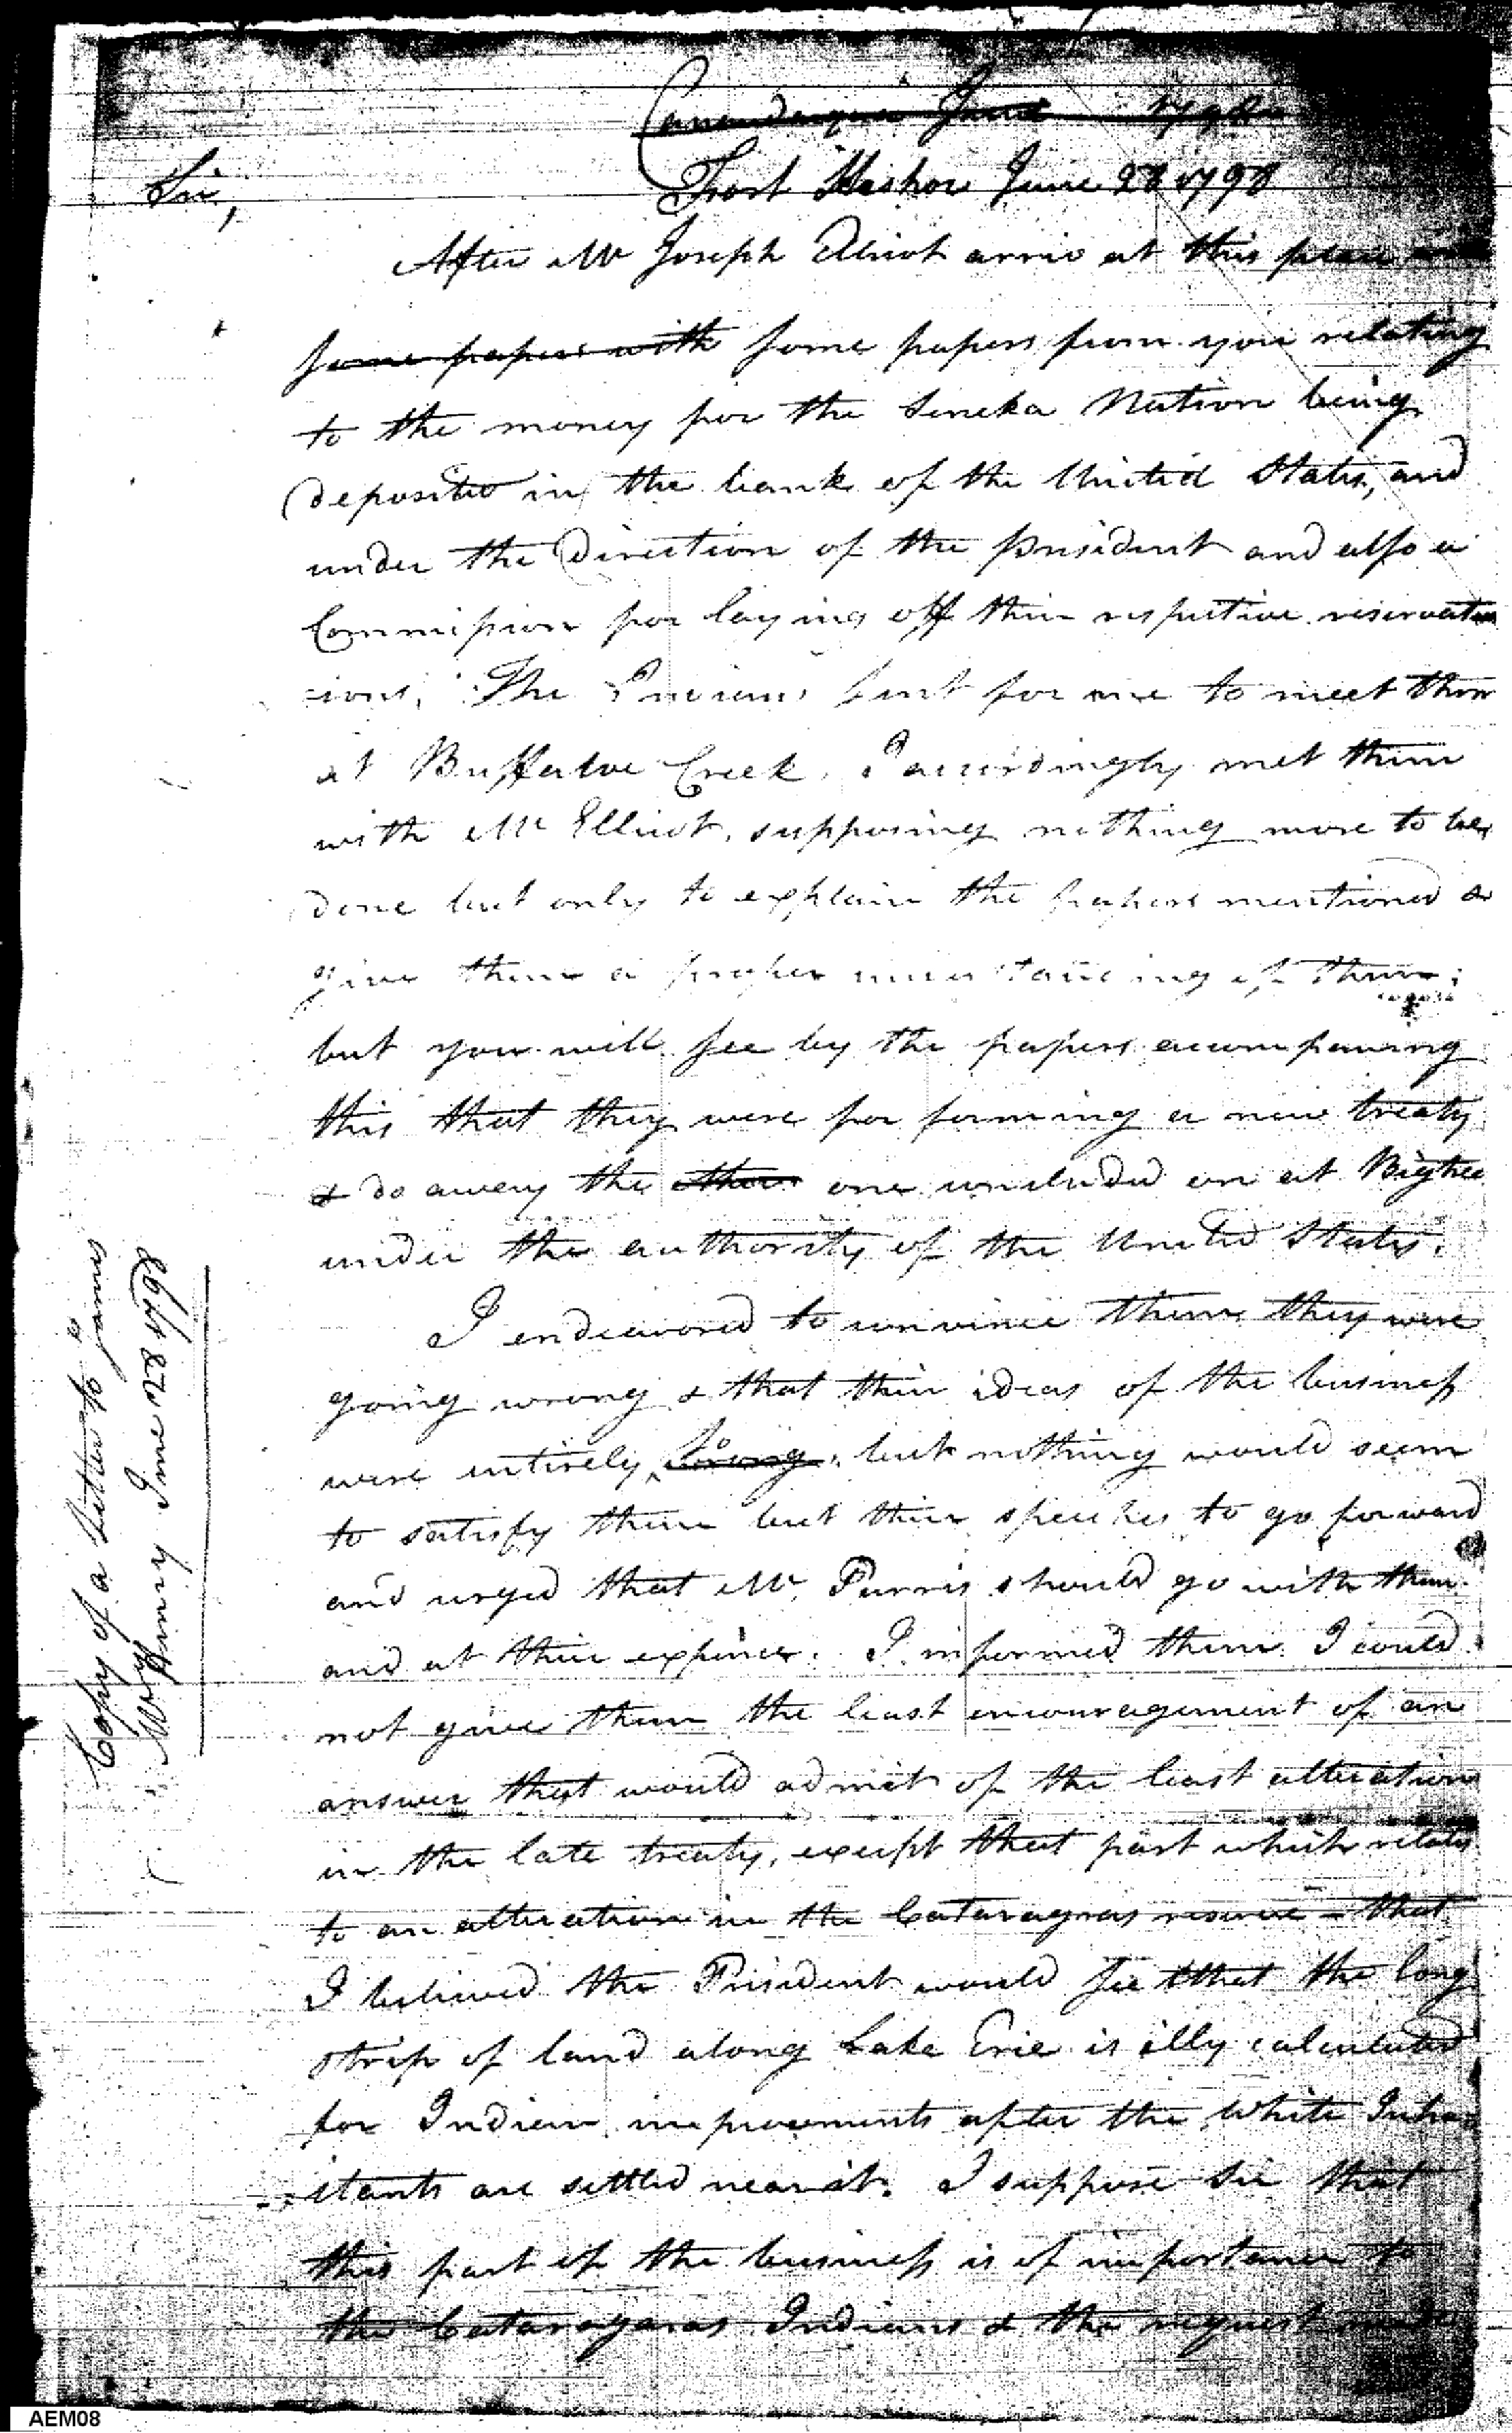 Canandarqua June 1798
Fort Meshow June 28 1798
Sir,
After Mr Joseph Elliot arrid at this place
some papers with some papers from you relating
to the money for the Seneka Nation being
deposited in the bank of the United States, and
under the Direction of the president and also a
Commission for laying off their respective reservat
ions, The Indians sent for me to meet them
at Buffaloe Creek, I accordingly met them
with Mr Elliot, supposing nothing more to be
done but only to explain the papers mentioned &
give them a proper understanding of them;
but you will see by the papers accompaning
this that they were for forming a new treaty
& do away the other one concluded on at Bigtree
under the authority of the United States.
I endeavored to convince them they were
going wrong & that their ideas of the business
were entirely so wrong, but nothing would seem
to satisfy them but their speeches to go forward
and urged that Mr. Parris should go with them
and at their expence. I informed them I could
not give them the least encouragement of an
answer that would admit of the least alteration
in the late treaty, except that part which relates
to an alteration in the Cataragras reserve - that
I believed the President would see that the long
strip of land along Lake Erie is illy calculated
for Indian improvements after the White Inha-
-itants are settled near it. I suppose Sir that
this part of the business is of importance to
the Cataragaras Indians & the request made
Copy of a letter to James
McHenry June 28 1798
AEM08